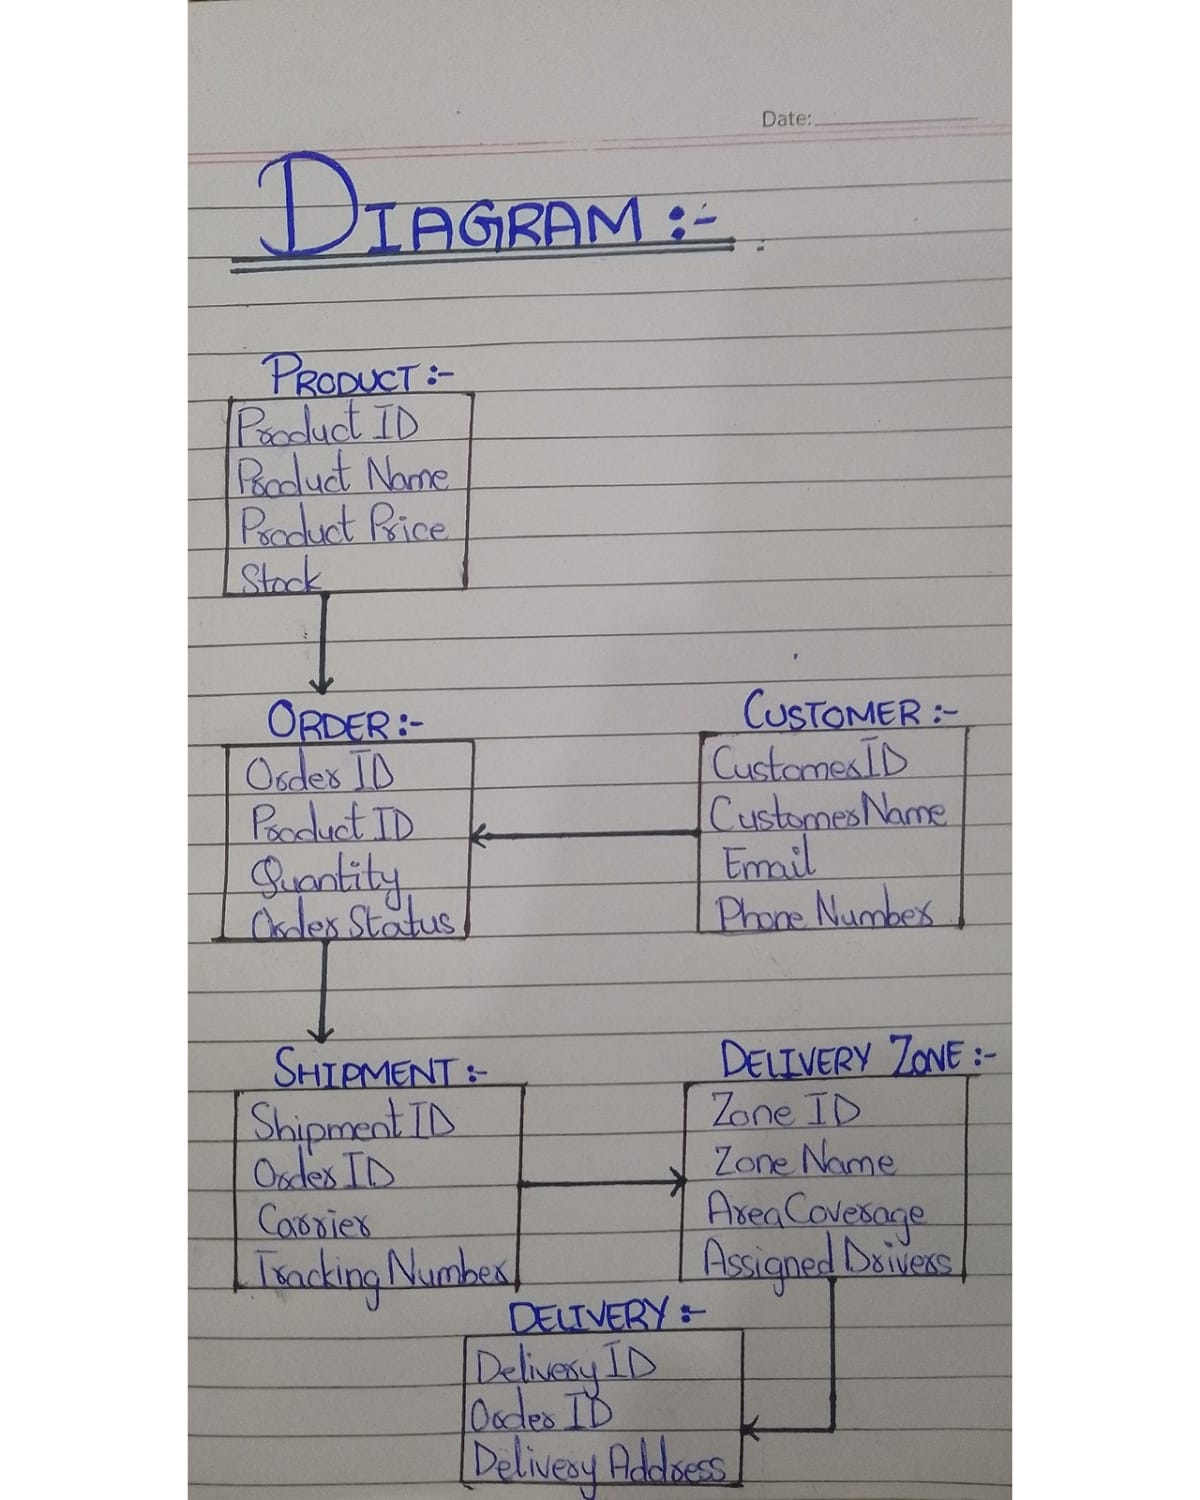 Date:
DIAGRAM :-
PRODUCT :-
Product ID
Product Name
Product Price
Stock
ORDER :-
Order ID
Product ID
Quantity
Order Status
CUSTOMER :-
Customer ID
Customer Name
Email
Phone Number
SHIPMENT :-
Shipment ID
Order ID
Carrier
Tracking Number
DELIVERY ZONE :-
Zone ID
Zone Name
Area Coverage
Assigned Drivers
DELIVERY :-
Delivery ID
Order ID
Delivery Address